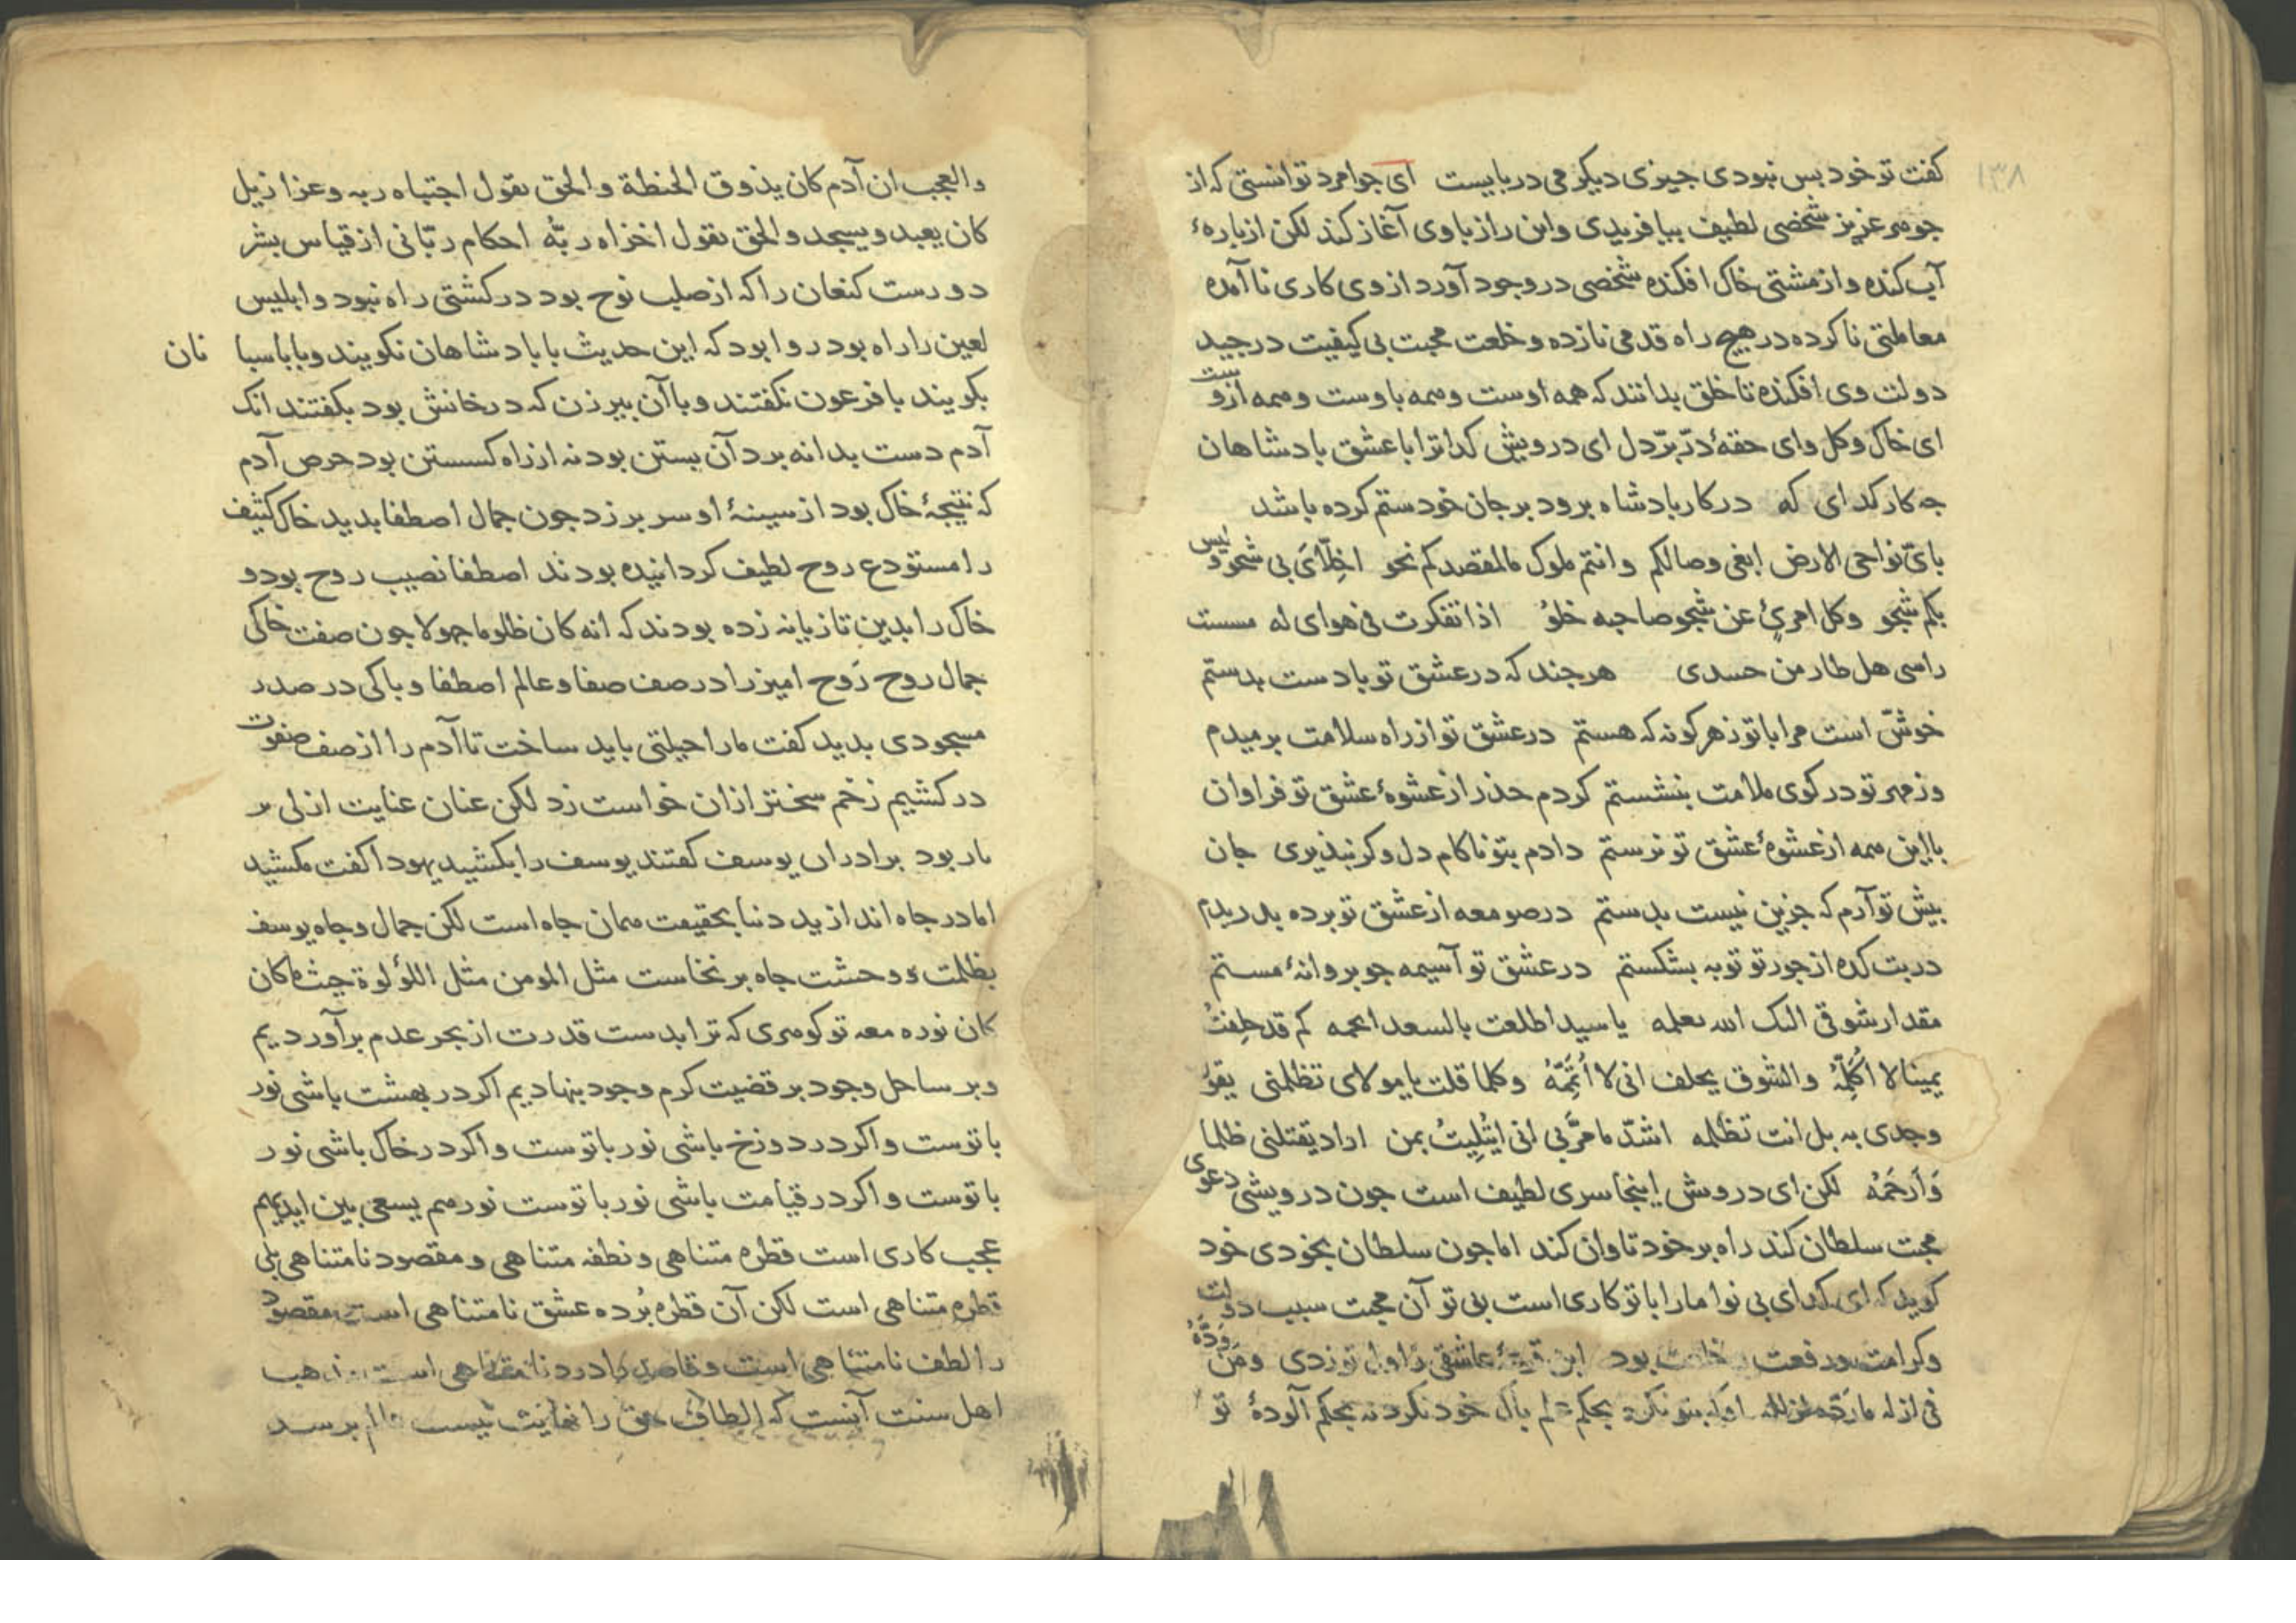 ۱۳۸
کفت تو خود بس نبودی جیزی دیکر می دربایست ای جوامرد توانستی که از
جوهر عزیز شخصی لطیف بیافریدی واین راز باوی آغاز کند لکن از پارهٔ
آب کنده واز مشتی خاک افکنده شخصی در وجود آورد از وی کاری ناآمده
معاملتی ناکرده در هیچ راه قدمی نازده وخلعت محبت بی کیفیت در جید
دولت وی افکنده تا خلق بدانند که همه اوست وهمه باوست وهمه ازوست
ای خاک وکل وای حقهٔ درّ برّ دل ای درویش کدا ترا باعشق بادشاهان
جه کار کدای که در کار بادشاه برود بر جان خود ستم کرده باشد
بایّ نواحی الارض ابغی وصالکم وانتم ملوک مالمقصدکم نحو اخلّای بی شجو ولیس
بکم شجو وکل امریٍٔ عن شجو صاحبه خلوُ اذا تفکرت فی هوای له مسست
راسی هل طار من حسدی هرجند که در عشق تو بادست بدستم
خوشّ است مرا باتو زهر کونه که هستم در عشق تو از راه سلامت برمیدم
وز مهر تو در کوی ملامت بنشستم کردم حذر از عشوهٔ عشق تو فراوان
با این همه از عشوهٔ عشق تو نرستم دادم بتو ناکام دل وکر نبذیری جان
بیش تو آرم که جزین نیست بدستم در صومعه از عشق تو برده بدریدم
در بت کده از جور تو توبه بشکستم در عشق تو آسیمه جو بروانهٔ مستم
مقدار شوقی الیک الله یعلمه یا سیدا طلعت بالسعد انجمه کم قد حلفتُ
یمینا لا اُکَلِّمُهُ والشوق یحلف انی لا اُتَمِّمُهُ وکلما قلت یا مولای تظلمنی یقوُ
وجدی به بل انت تظلمه اشدّ ما مرَّ بی انی ابتُلِیتُ بمن اراد یقتلنی ظلما
وَاَرحَمُهُ لکن ای درویش اینجا سری لطیف است جون درویشی دعوی
محبت سلطان کند راه برخود تاوان کند اما جون سلطان بخودی خود
کوید که ای کدای بی نوا مارا باتو کاری است بی تو آن محبت سبب دولت
وکرامت ورفعت بود این عاشقی را اول تو زدی ومَن وَدَّهُ
فی ازله ما بحکم خود نکرد نه بحکم آلودهٔ تو
والعجب ان آدم کان یذوق الحنطة والحق یقول اجتباه ربه وعزازیل
کان یعبد ویسجد والحق یقول اخزاه ربُّه احکام ربّانی از قیاس بشر
دورست کنعان را که از صلب نوح بود در کشتی راه نبود وابلیس
لعین را راه بود روا بود که این حدیث با بادشاهان نکویند وبا باسبانان
بکویند با فرعون نکفتند وبا آن بیرزن که در خانش بود بکفتند انک
آدم دست بدانه برد آن بستن بود نه از راه کسستن بود حرص آدم
که نتیجهٔ خاک بود از سینهٔ او سر برزد جون جمال اصطفا بدید خاک کثیف
را مستودع روح لطیف کردانیده بودند اصطفا نصیب روح بود و
خاک را بدین تازیانه زده بودند که انه کان ظلوما جهولا جون صفت خاکی
جمال روح رَوح امیز را در صف صفا وعالم اصطفا وباکی در صدر
مسجودی بدید کفت مارا حیلتی باید ساخت تا آدم را از صف صفوت
درکشیم زخم سختر ازان خواست زد لکن عنان عنایت ازلی بر
بار بود برادران یوسف کفتند یوسف را بکشید یهودا کفت مکشید
اما در جاه اندازید دنیا بحقیقت همان جاه است لکن جمال وجاه یوسف
بظلمت و وحشت جاه برنخاست مثل المومن مثل اللؤلوة حیث ما کان
کان نوره معه تو کوهری که ترا بدست قدرت از بحر عدم برآوردیم
وبر ساحل وجود بر قضیت کرم وجود بنهادیم اکر در بهشت باشی نور
باتوست واکر در دوزخ باشی نور باتوست واکر در خاک باشی نور
باتوست واکر در قیامت باشی نور باتوست نورهم یسعی بین ایدیهم
عجب کاری است قطره متناهی ونطفه متناهی ومقصود نامتناهی بلی
قطره متناهی است لکن آن قطره بُرده عشق نامتناهی است مقصود
را لطف نامتناهی است وقاصد را درد نامتناهی است مذهب
اهل سنت آنست که الطاف حق را نهایت نیست برسد